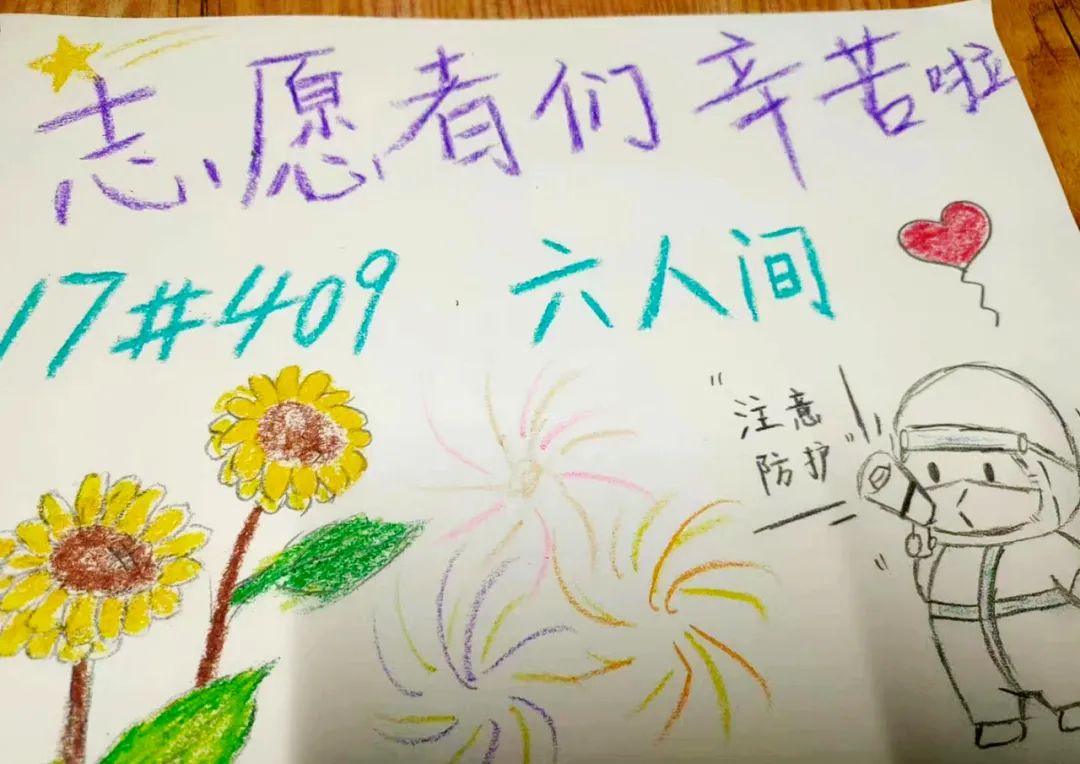 志愿者们辛苦啦
17#409 六人间
"注意
防护"